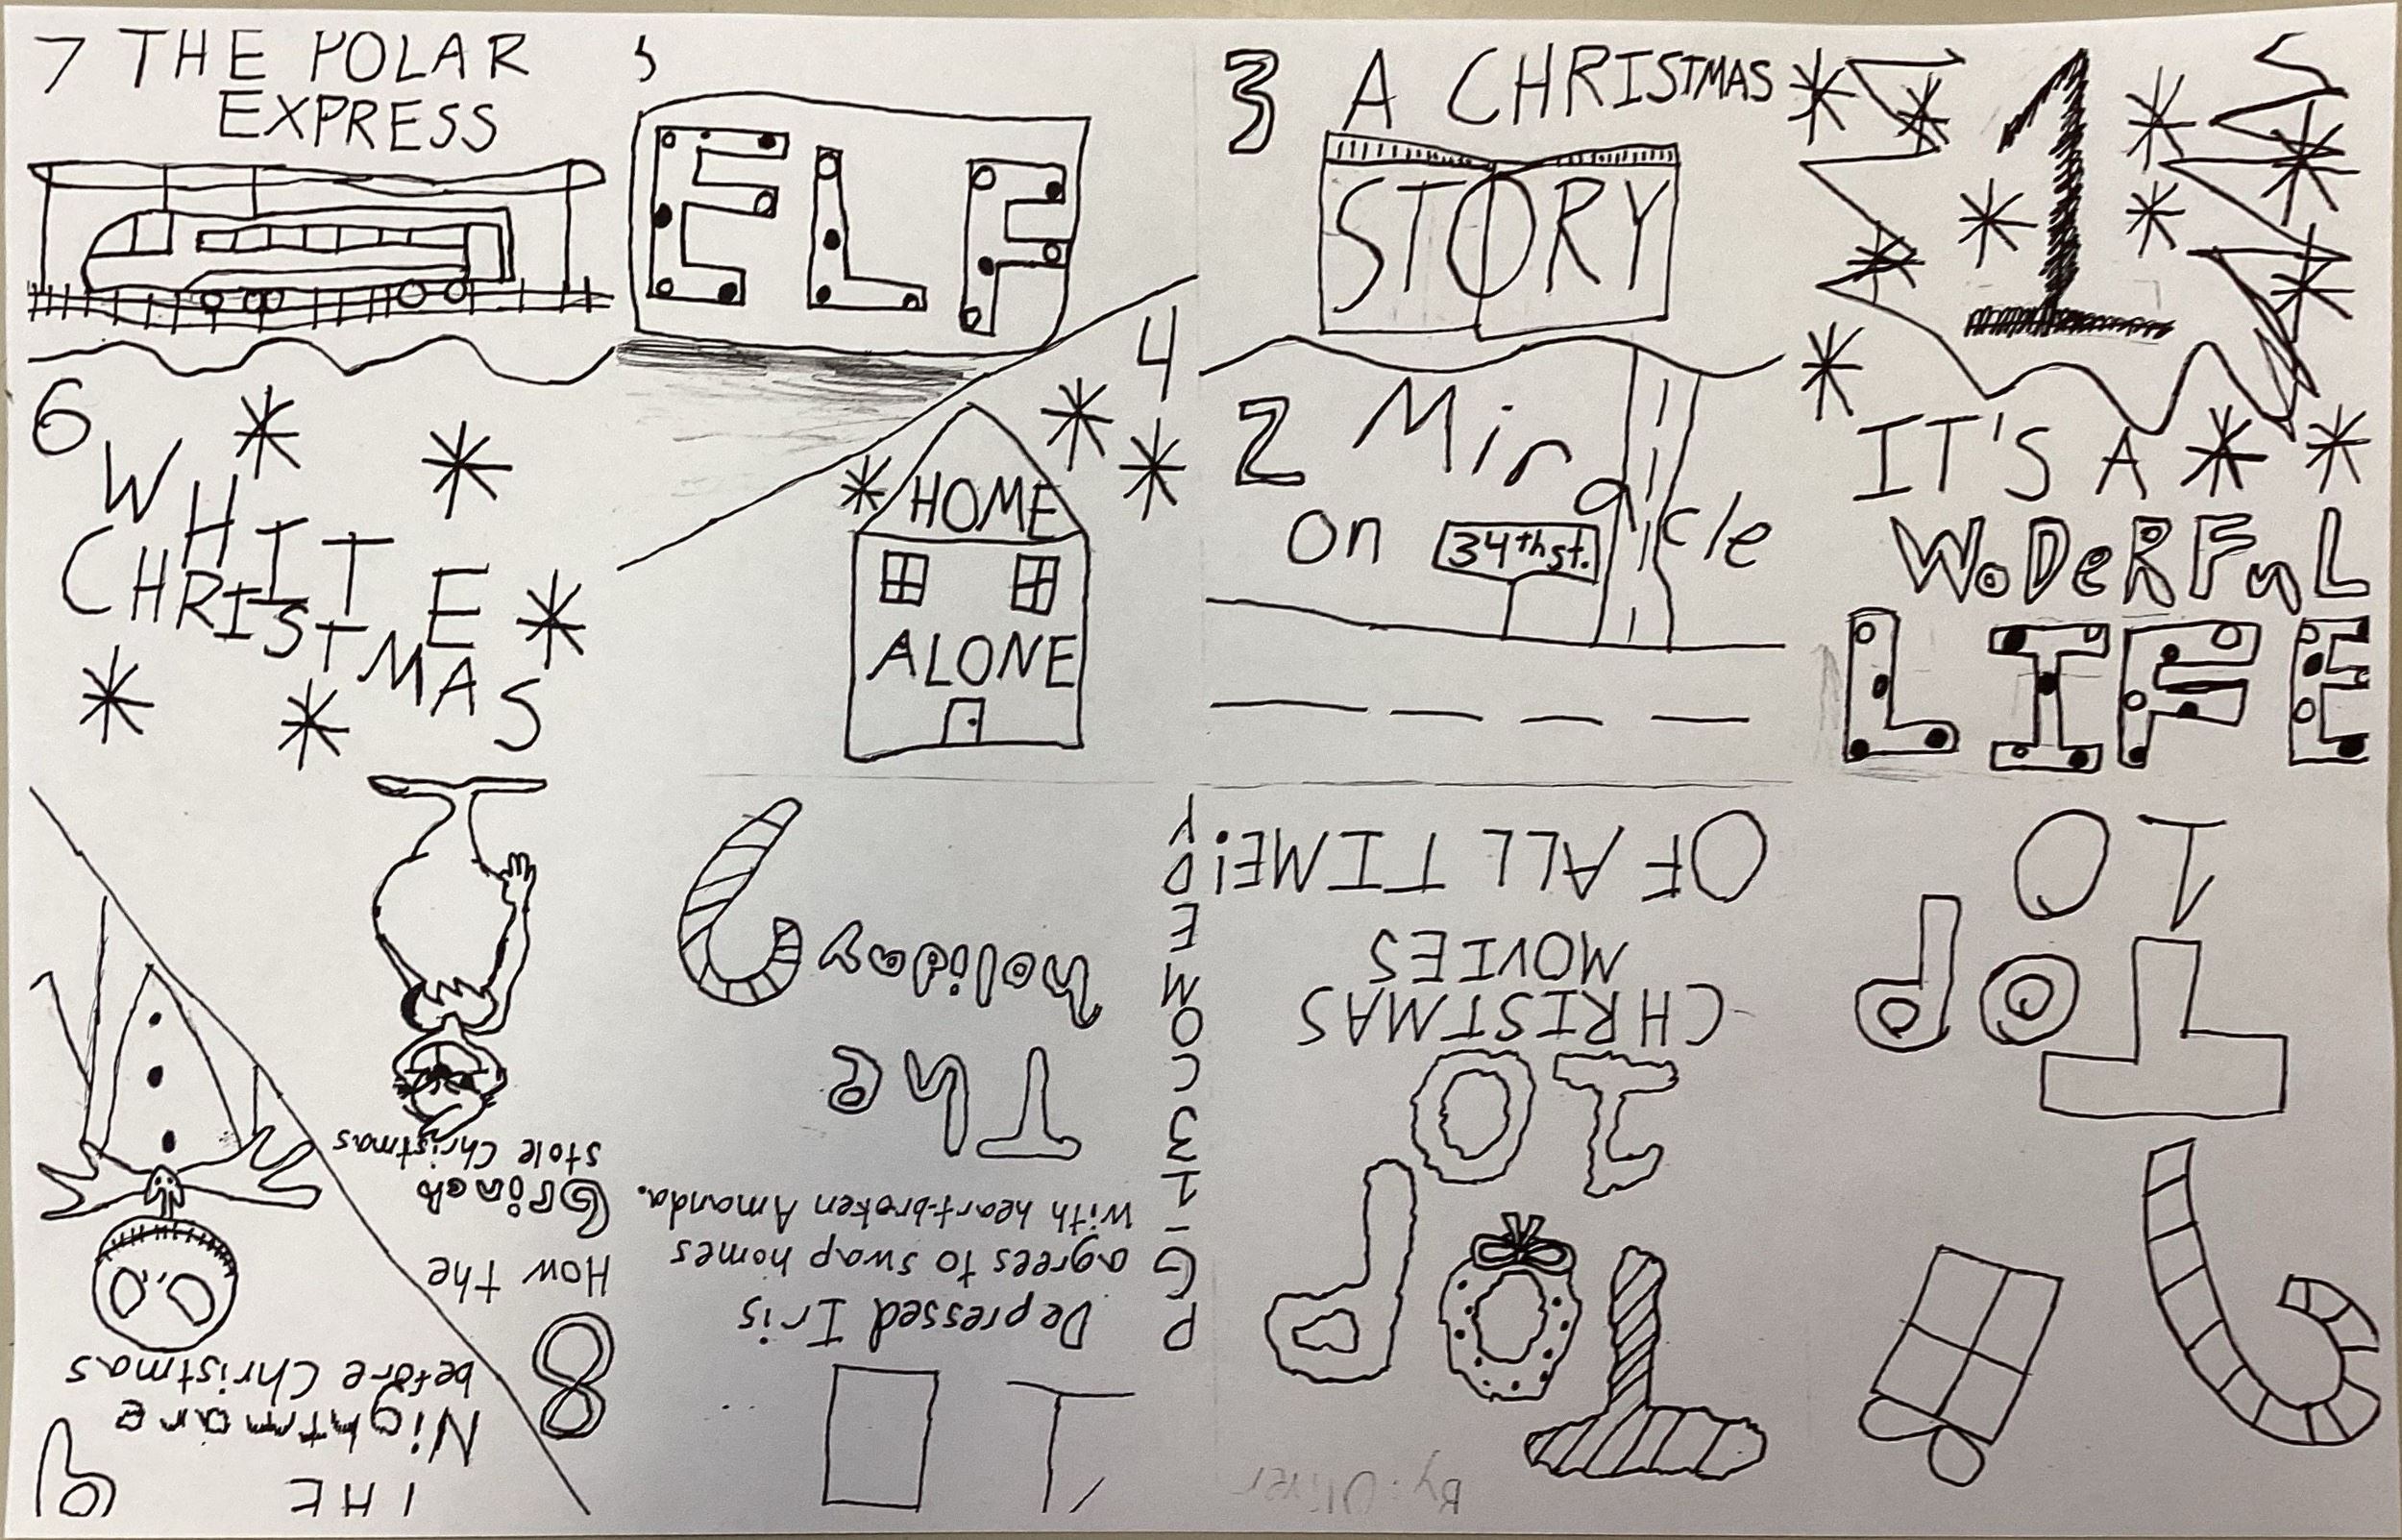 7 THE POLAR
EXPRESS
5
ELF
3 A CHRISTMAS
STORY
1
6
WHITE
CHRISTMAS
4
HOME
ALONE
2 Miracle
on 34th st.
IT'S A
WoDeRFuL
LIFE
TOP
10
TOP
10
CHRISTMAS
MOVIES
OF ALL TIME!
By: Oliver
10
Depressed Iris
agrees to swap homes
with heart-broken Amanda.
The
holiday
PG-13 COMEDY
9
THE
Nightmare
before Christmas
8
How the
Grinch
stole Christmas